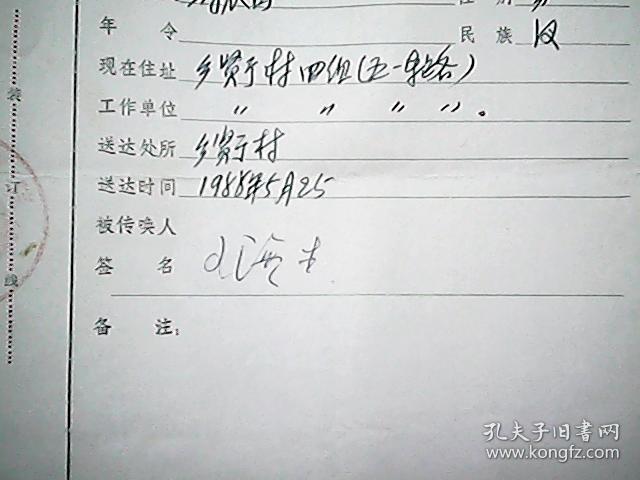 年 令 民 族 汉
现在住址 乡贤于村四组(五一车路)
工作单位 〃 〃 〃 〃 。
送达处所 乡贤于村
送达时间 1988年5月25
被传唤人
签 名
备 注:
装
订
线
孔夫子旧书网
www.kongfz.com